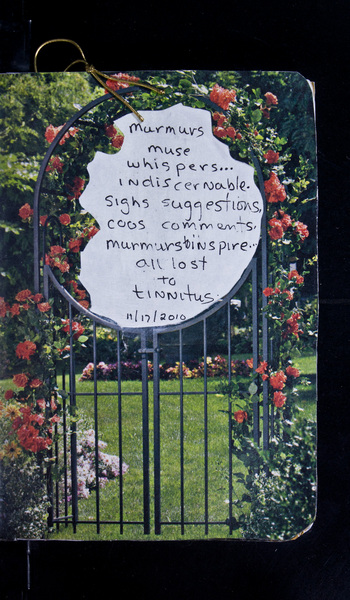 murmurs
muse
whispers...
indiscernable.
sighs suggestions,
coos comments,
murmurs inspire..
all lost
to
tinnitus.
11/17/2010